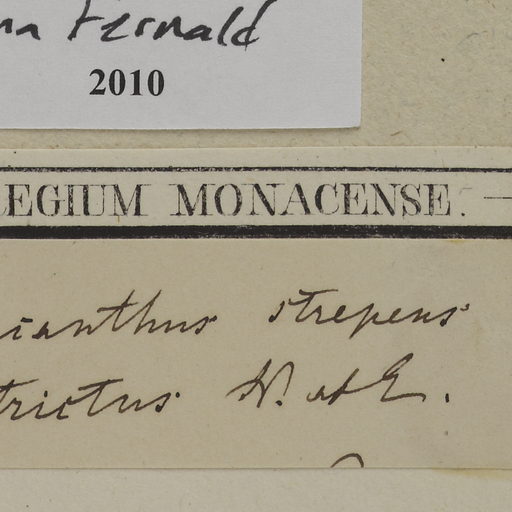 na Fernald
2010
LEGIUM MONACENSE.
ianthus strepens
trictus W. et E.